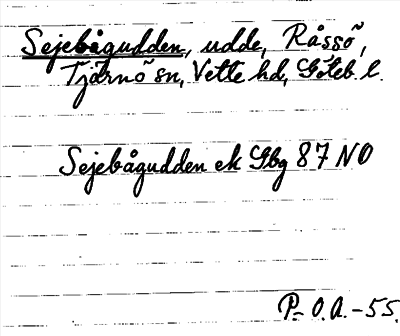 Sejebågudden, udde, Råssö,
Tjärnö sn, Vette hd, Göteb. l.
Sejebågudden ek Gbg 87 NO
P-O.A.-55.